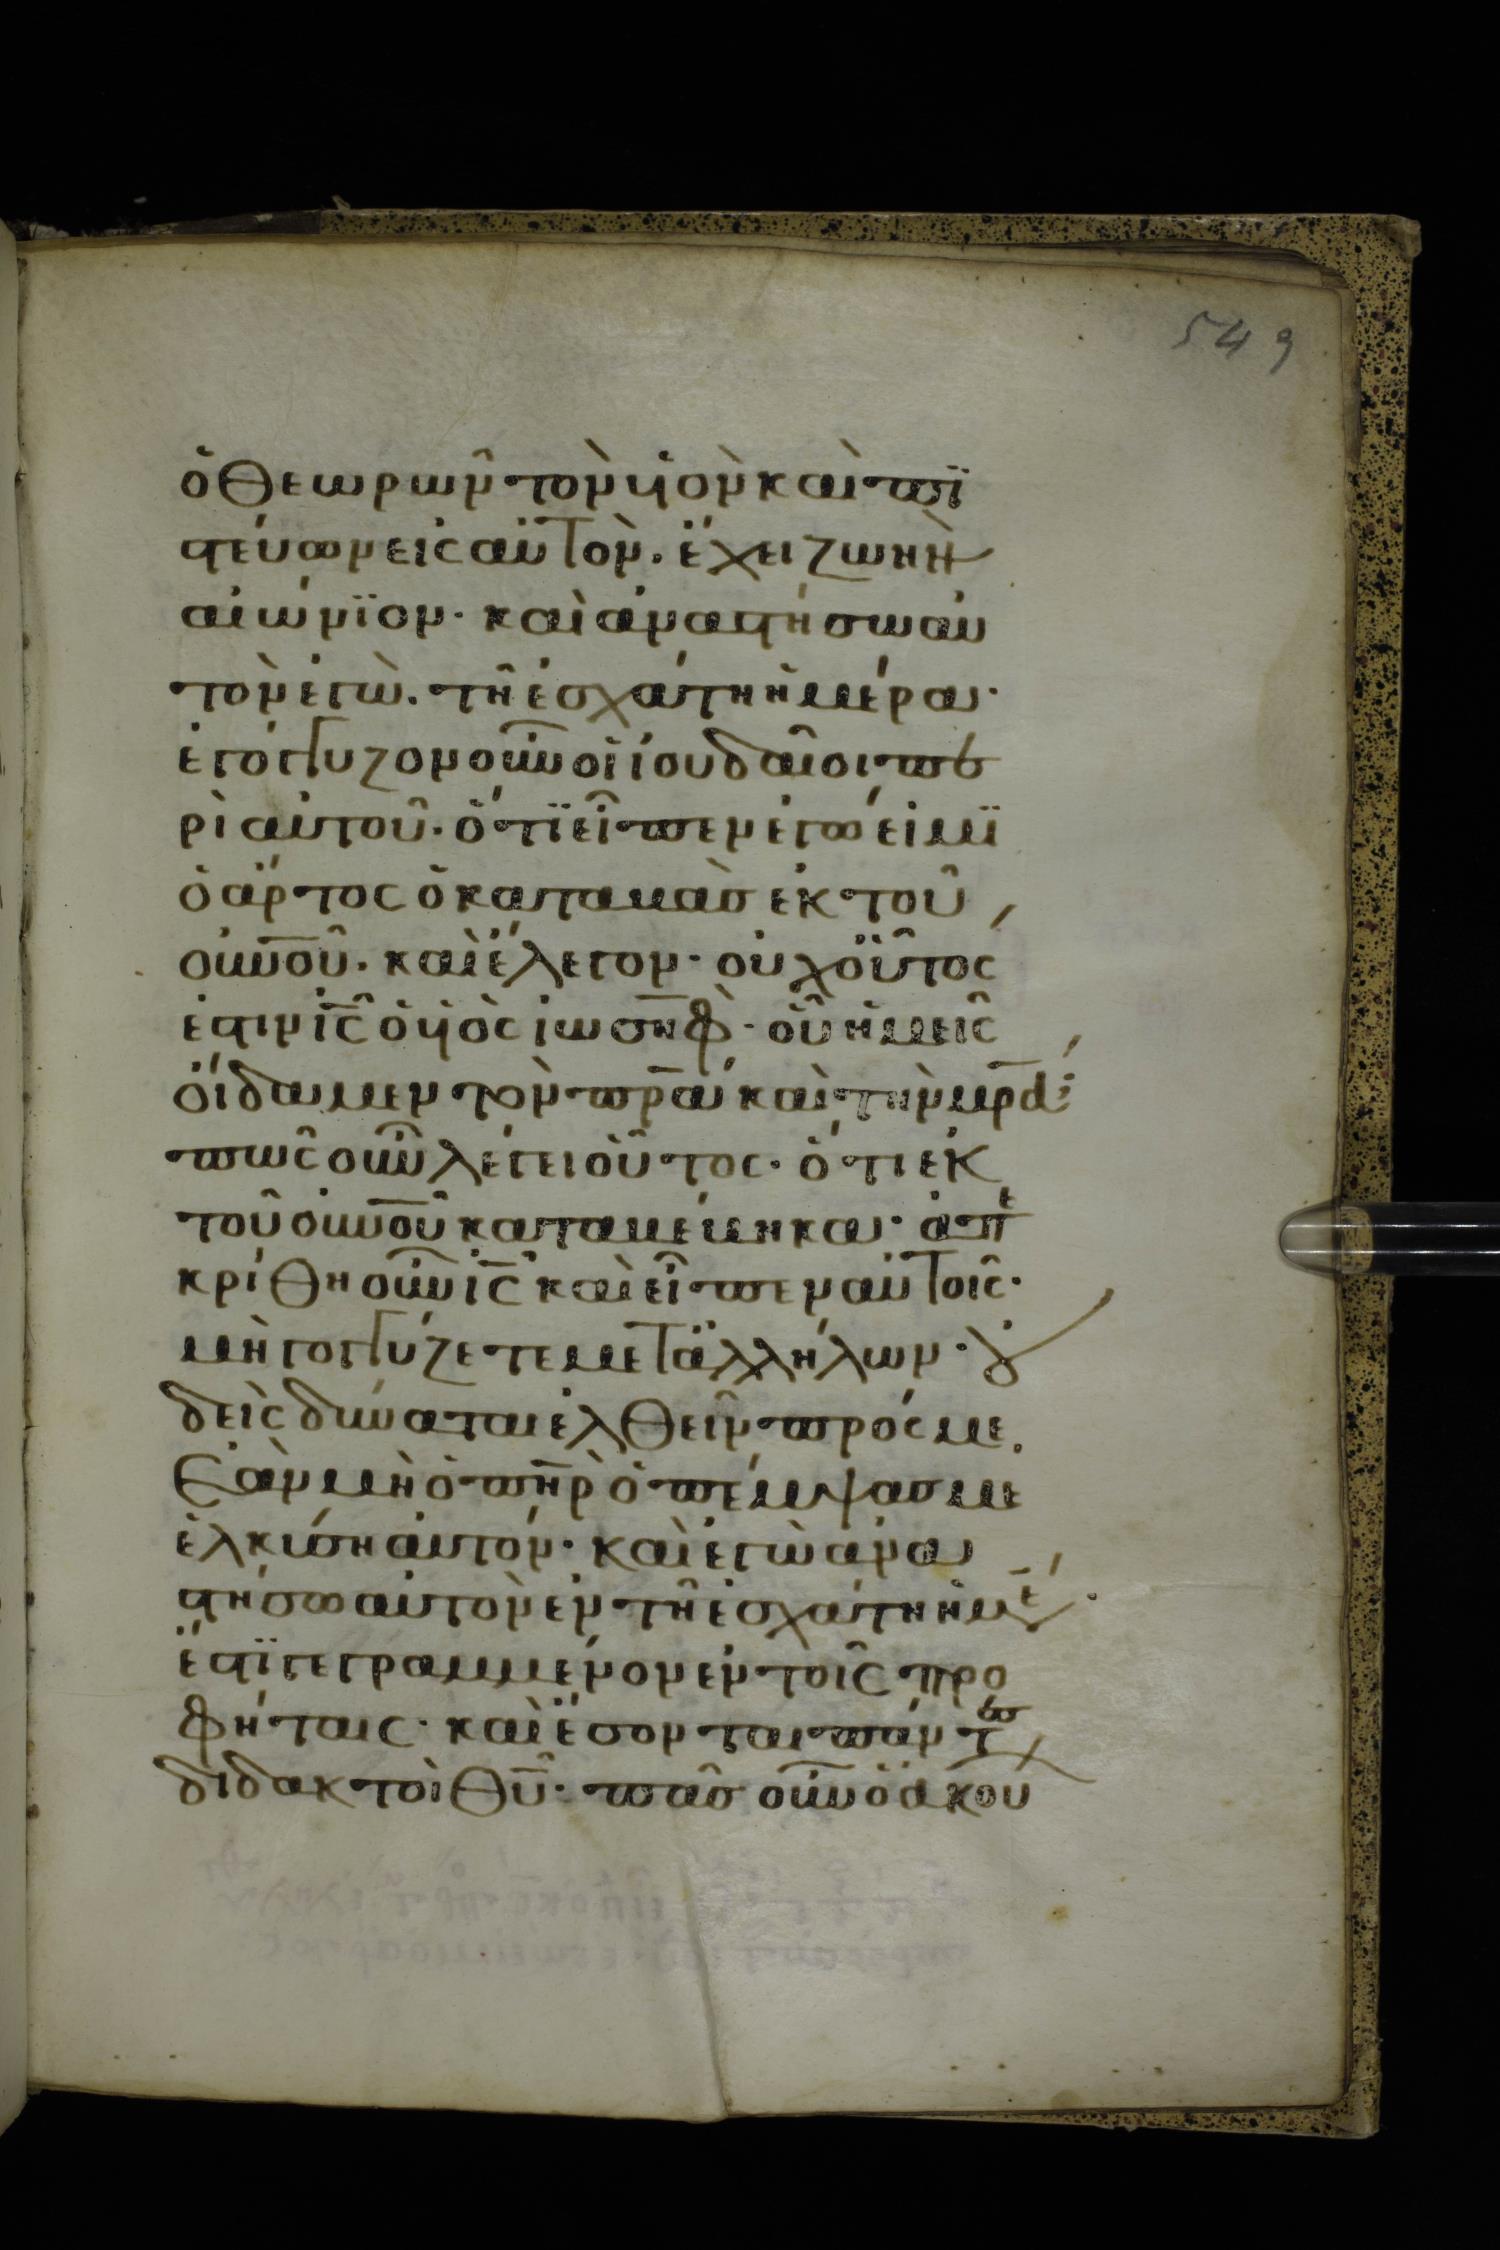 549
ὁ θεωρῶν τὸν υἱὸν καὶ πϊ
στεύων εἰς αὐτὸν. ἔχει ζωὴν
αἰώνϊον· καὶ ἀναστήσω αὐ
τὸν ἐγὼ. τῆ ἐσχάτη ἡμέρα·
ἐγόγγυζον οὖν οἱ ἰουδαῖοι πε
ρὶ αὐτοῦ· ὅτϊ εἶπεν ἐγώ εἰμϊ
ὁ ἄρτος ὁ καταβὰσ ἐκ τοῦ
οὐνοῦ· καὶ ἔλεγον· οὐχ οὗτος
ἐστιν ἰς ὁ υἱὸς ἰωσὴφ· οὗ ἡμεῖς
οἴδαμεν τὸν πρα καὶ τὴν μρα·
πῶς οὖν λέγει οὗτος· ὅτι ἐκ
τοῦ οὐνοῦ καταβέβηκα· ἀπε
κρίθη οὖν ἰς καὶ εἶπεν αὐτοῖς·
μὴ γογγύζετε μετ ἀλλήλων· οὐ
δεὶς δύναται ἐλθεῖν πρός με.
Ἐὰν μὴ ὁ πηρ ὁ πέμψασ με
ἑλκύση αὐτόν· καὶ ἐγὼ ἀνα
στήσω αὐτὸν ἐν τῆ ἐσχάτη ἡμέ·
ἔστϊ γεγραμμένον ἐν τοῖς προ
φήταις· καὶ ἔσονται πάντες
διδακτοὶ θυ· πᾶσ οὖν ὁ ἀκού